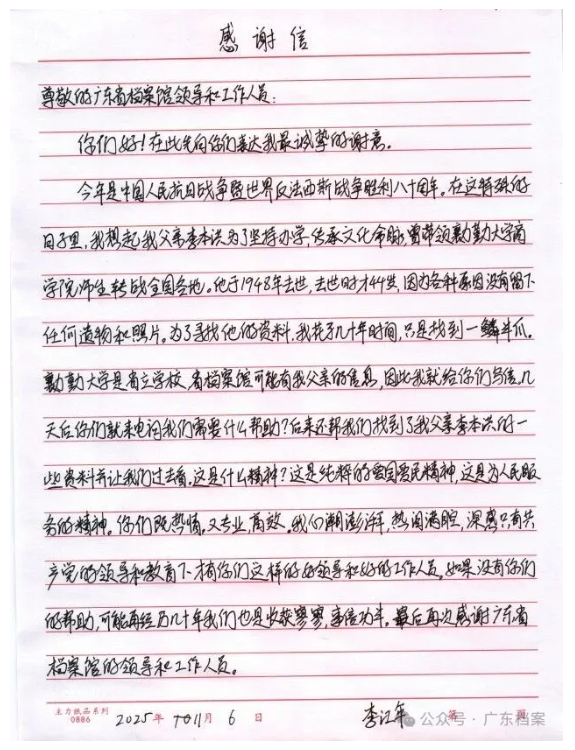 感谢信
尊敬的广东省档案馆领导和工作人员:
你们好!在此先向你们表达我最诚挚的谢意。
今年是中国人民抗日战争暨世界反法西斯战争胜利八十周年。在这特殊的
日子里,我想起我父亲李本洪为了坚持办学,传承文化命脉,曾带领勷勤大学商
学院师生转战全国各地。他于1948年去世,去世时才44岁,因为各种原因没有留下
任何遗物和照片。为了寻找他的资料,我花了几十年时间,只是找到一鳞半爪。
勷勤大学是省立学校,省档案馆可能有我父亲的信息,因此我就给你们写信。几
天后你们就来电询我们需要什么帮助?后来还帮我们找到了我父亲李本洪的一
些资料并让我们过去看。这是什么精神?这是纯粹的爱国爱民精神,这是为人民服
务的精神。你们既热情,又专业,高效。我心潮澎湃,热泪满腔,深感只有共
产党的领导和教育下才有你们这样的好领导和好的工作人员。如果没有你们
的帮助,可能再经历几十年我们也是收获寥寥,事倍功半。最后再次感谢广东省
档案馆的领导和工作人员。
主力纸品系列
0886
2025年 11月 6日 李江年 第 页
公众号·广东档案